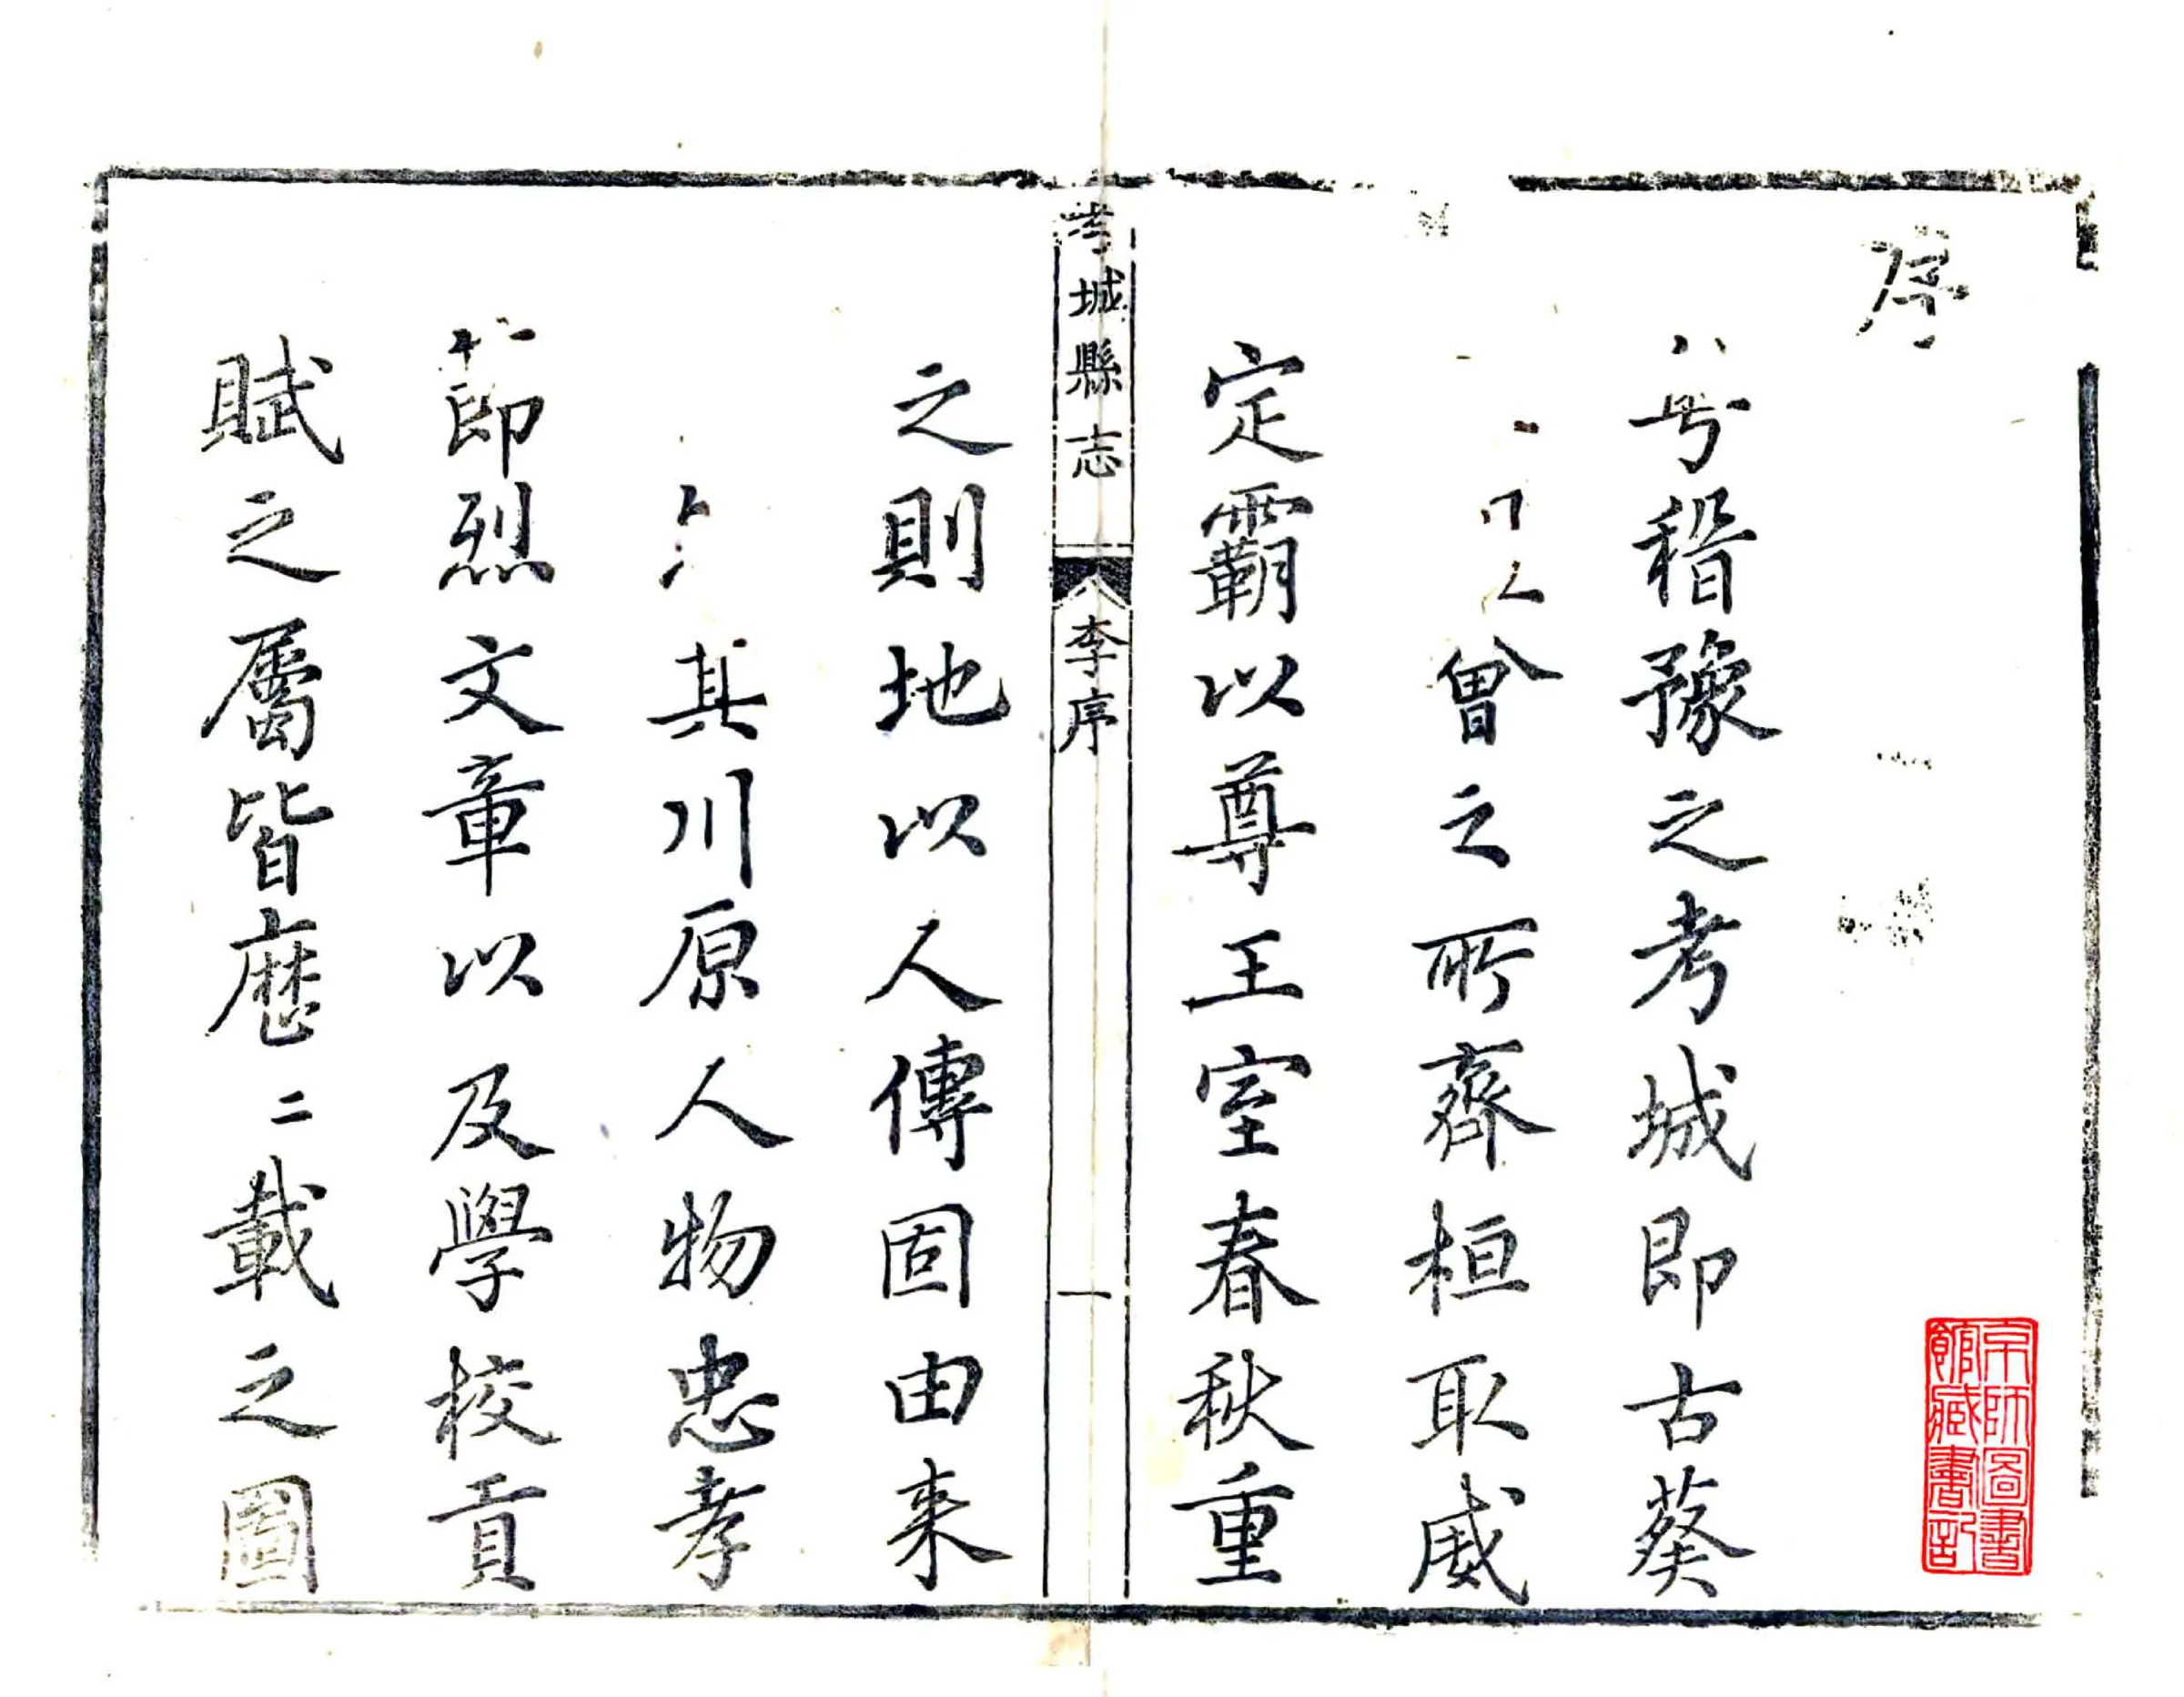 序
稽豫之考城即古葵
會之所齊桓取威
定霸以尊王室春秋重
之則地以人傳固由来
其川原人物忠孝
節烈文章以及學校貢
賦之屬皆歴二載之圖
考城縣志
李序
一
京師圖書
館藏書記